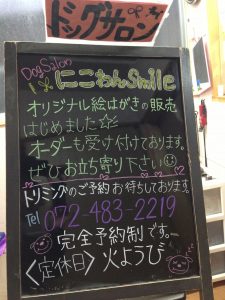 ドッグサロン
Dog Salon
にこわんSmile
オリジナル絵はがきの販売
はじめました☆
オーダーも受け付けております。
ぜひお立ち寄り下さい☺
トリミングのご予約お待ちしております。
Tel 072-483-2219
完全予約制です。
〈定休日〉火ようび